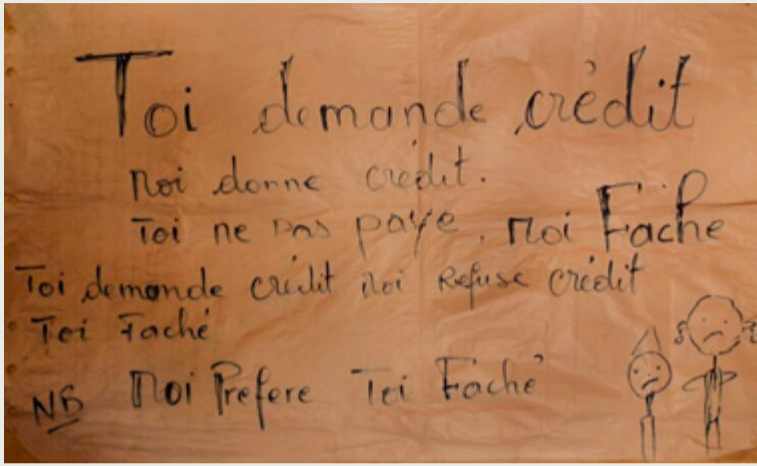 Toi demande crédit
Moi donne crédit.
Toi ne pas paye, Moi Faché
Toi demande crédit Moi Refuse crédit
Toi Faché
NB Moi Prefere Toi Faché